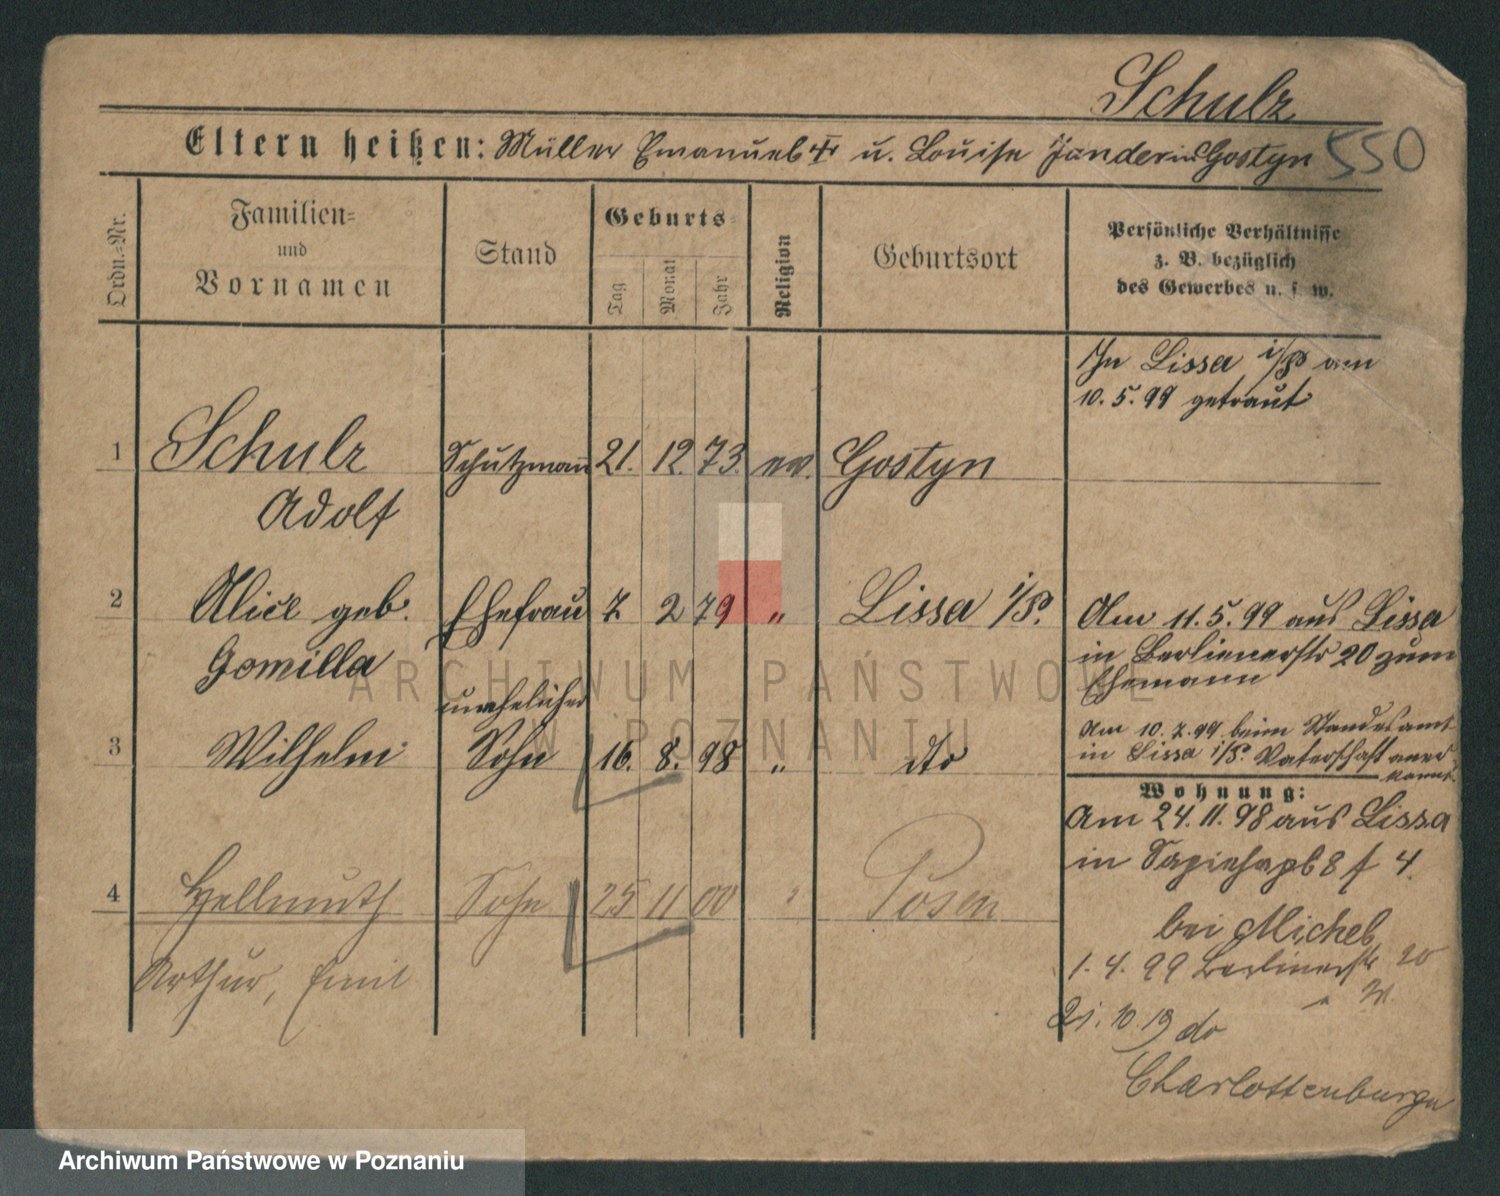 Schulz
Eltern heißen: Müller Emanuel † u. Louise Jander in Gostyn 550
Ordn.-Nr.
Familien-
und
Vornamen
Stand
Geburts-
Tag
Monat
Jahr
Religion
Geburtsort
Persönliche Verhältnisse
z. B. bezüglich
des Gewerbes u. s. w.
In Lissa i/P am
10. 5. 99 getraut
1 Schulz Schutzmann 21. 12. 73. ev. Gostyn
Adolf
2 Alice geb. Ehefrau 7 2 79 " Lissa i/P. Am 11. 5. 99 aus Lissa
Gomilla in Berlinerstr 20 zum
Ehemann
unehelicher
3 Wilhelm Sohn 16. 8. 98 " dto Am 10. 7. 99 beim Standesamt
in Lissa i/P. Vaterschaft aner
kannt.
Wohnung:
Am 24. 11. 98 aus Lissa
in Sapiehapl 8 f 4.
4 Hellmuth Sohn 25 11 00 " Posen
Arthur, Emil
bei Michel
1. 4. 99 Berlinerstr 20
21. 10. 19 do
Charlottenburg
ARCHIWUM PAŃSTWOWE
W POZNANIU
Archiwum Państwowe w Poznaniu